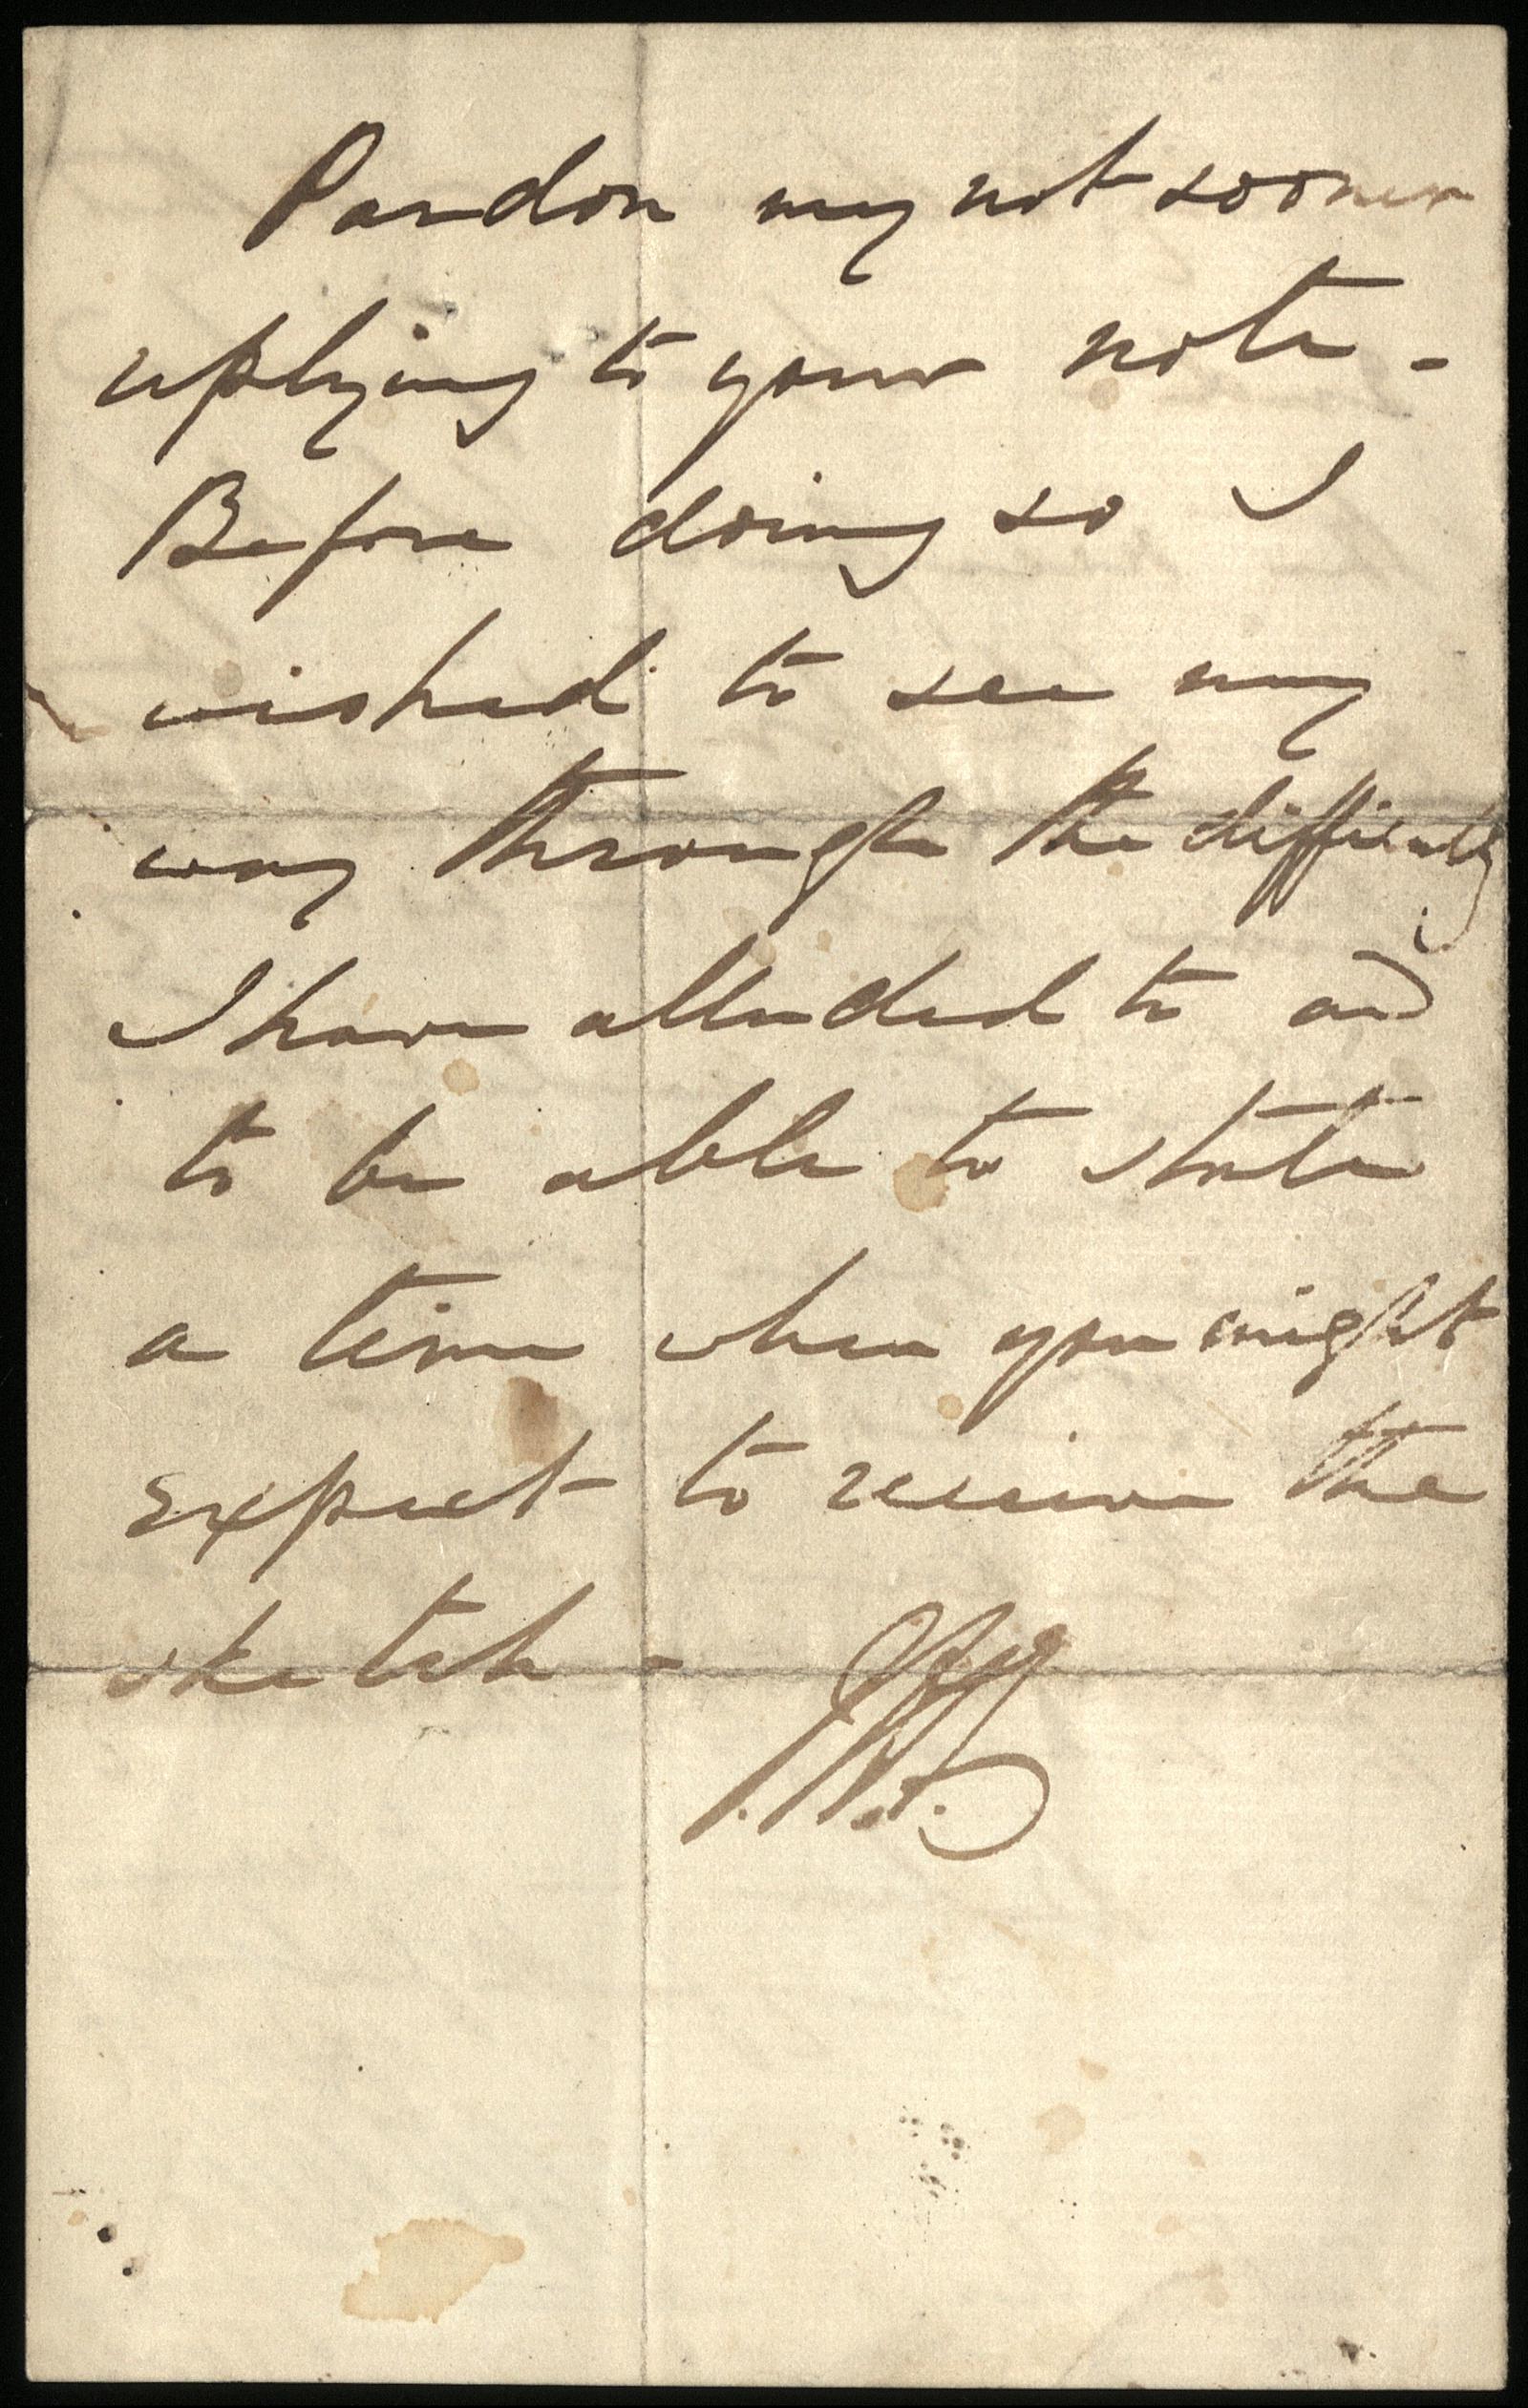 Pardon my not sooner
replying to your note -
Before doing so I
wished to see my
way through the difficulty
I have alluded to and
to be able to state
a time when you might
expect to receive the
sketch -